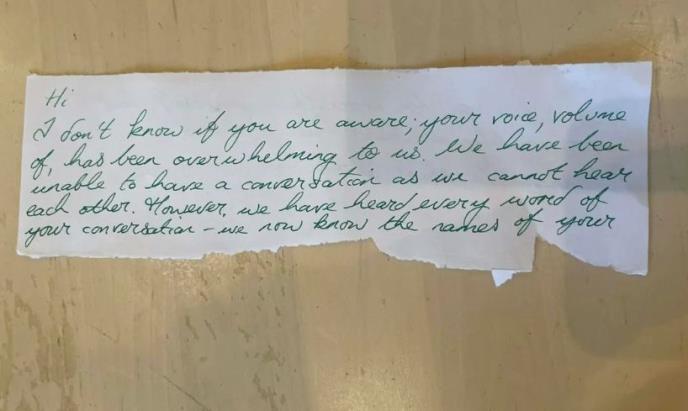 Hi
I don't know if you are aware; your voice, volume
of, has been overwhelming to us. We have been
unable to have a conversation as we cannot hear
each other. However, we have heard every word of
your conversation - we now know the names of your